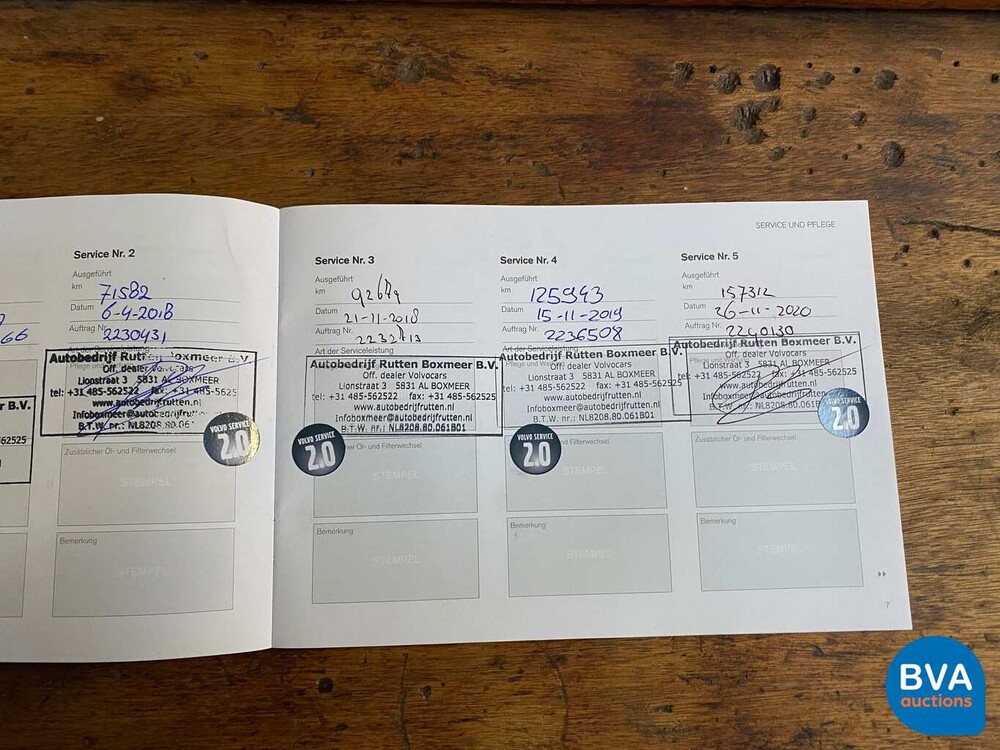 66
r B.V.
562525
Service Nr. 2
Ausgeführt
km 71582
Datum 6-4-2018
Auftrag Nr. 2230431
Autobedrijf Rutten Boxmeer B.V.
Off. dealer Volvocars
Lionstraat 3 5831 AL BOXMEER
tel: +31 485-562522 fax: +31 485-5625
www.autobedrijfrutten.nl
Infoboxmeer@autobedrijfrutten.nl
B.T.W. nr.: NL8208.80.061
VOLVO SERVICE
2.0
Zusätzlicher Öl- und Filterwechsel
STEMPEL
Bemerkung
STEMPEL
SERVICE UND PFLEGE
Service Nr. 3
Ausgeführt
km
Datum 21-11-2018
Auftrag Nr.
Art der Serviceleistung
Autobedrijf Rutten Boxmeer B.V.
Off. dealer Volvocars
Lionstraat 3 5831 AL BOXMEER
tel: +31 485-562522 fax: +31 485-562525
www.autobedrijfrutten.nl
Infoboxmeer@autobedrijfrutten.nl
B.T.W. nr.: NL8208.80.061B01
VOLVO SERVICE
2.0
her Öl- und Filterwechsel
STEMPEL
Bemerkung
STEMPEL
Service Nr. 4
Ausgeführt
km 125943
Datum 15-11-2019
Auftrag Nr. 2236508
Autobedrijf Rutten Boxmeer B.V.
Off. dealer Volvocars
Lionstraat 3 5831 AL BOXMEER
tel: +31 485-562522 fax: +31 485-562525
www.autobedrijfrutten.nl
Infoboxmeer@autobedrijfrutten.nl
B.T.W. nr.: NL8208.80.061B01
VOLVO SERVICE
2.0
Öl- und Filterwechsel
STEMPEL
Bemerkung
STEMPEL
Service Nr. 5
Ausgeführt
km 157312
Datum 26-11-2020
Auftrag Nr. 2240130
Autobedrijf Rutten Boxmeer B.V.
Off. dealer Volvocars
Lionstraat 3 5831 AL BOXMEER
tel: +31 485-562522 fax: +31 485-562525
www.autobedrijfrutten.nl
Infoboxmeer@autobedrijfrutten.nl
B.T.W. nr.: NL8208.80.061B01
VOLVO SERVICE
2.0
Zusätzlicher Öl- und Filterwechsel
STEMPEL
Bemerkung
STEMPEL
7
BVA
auctions